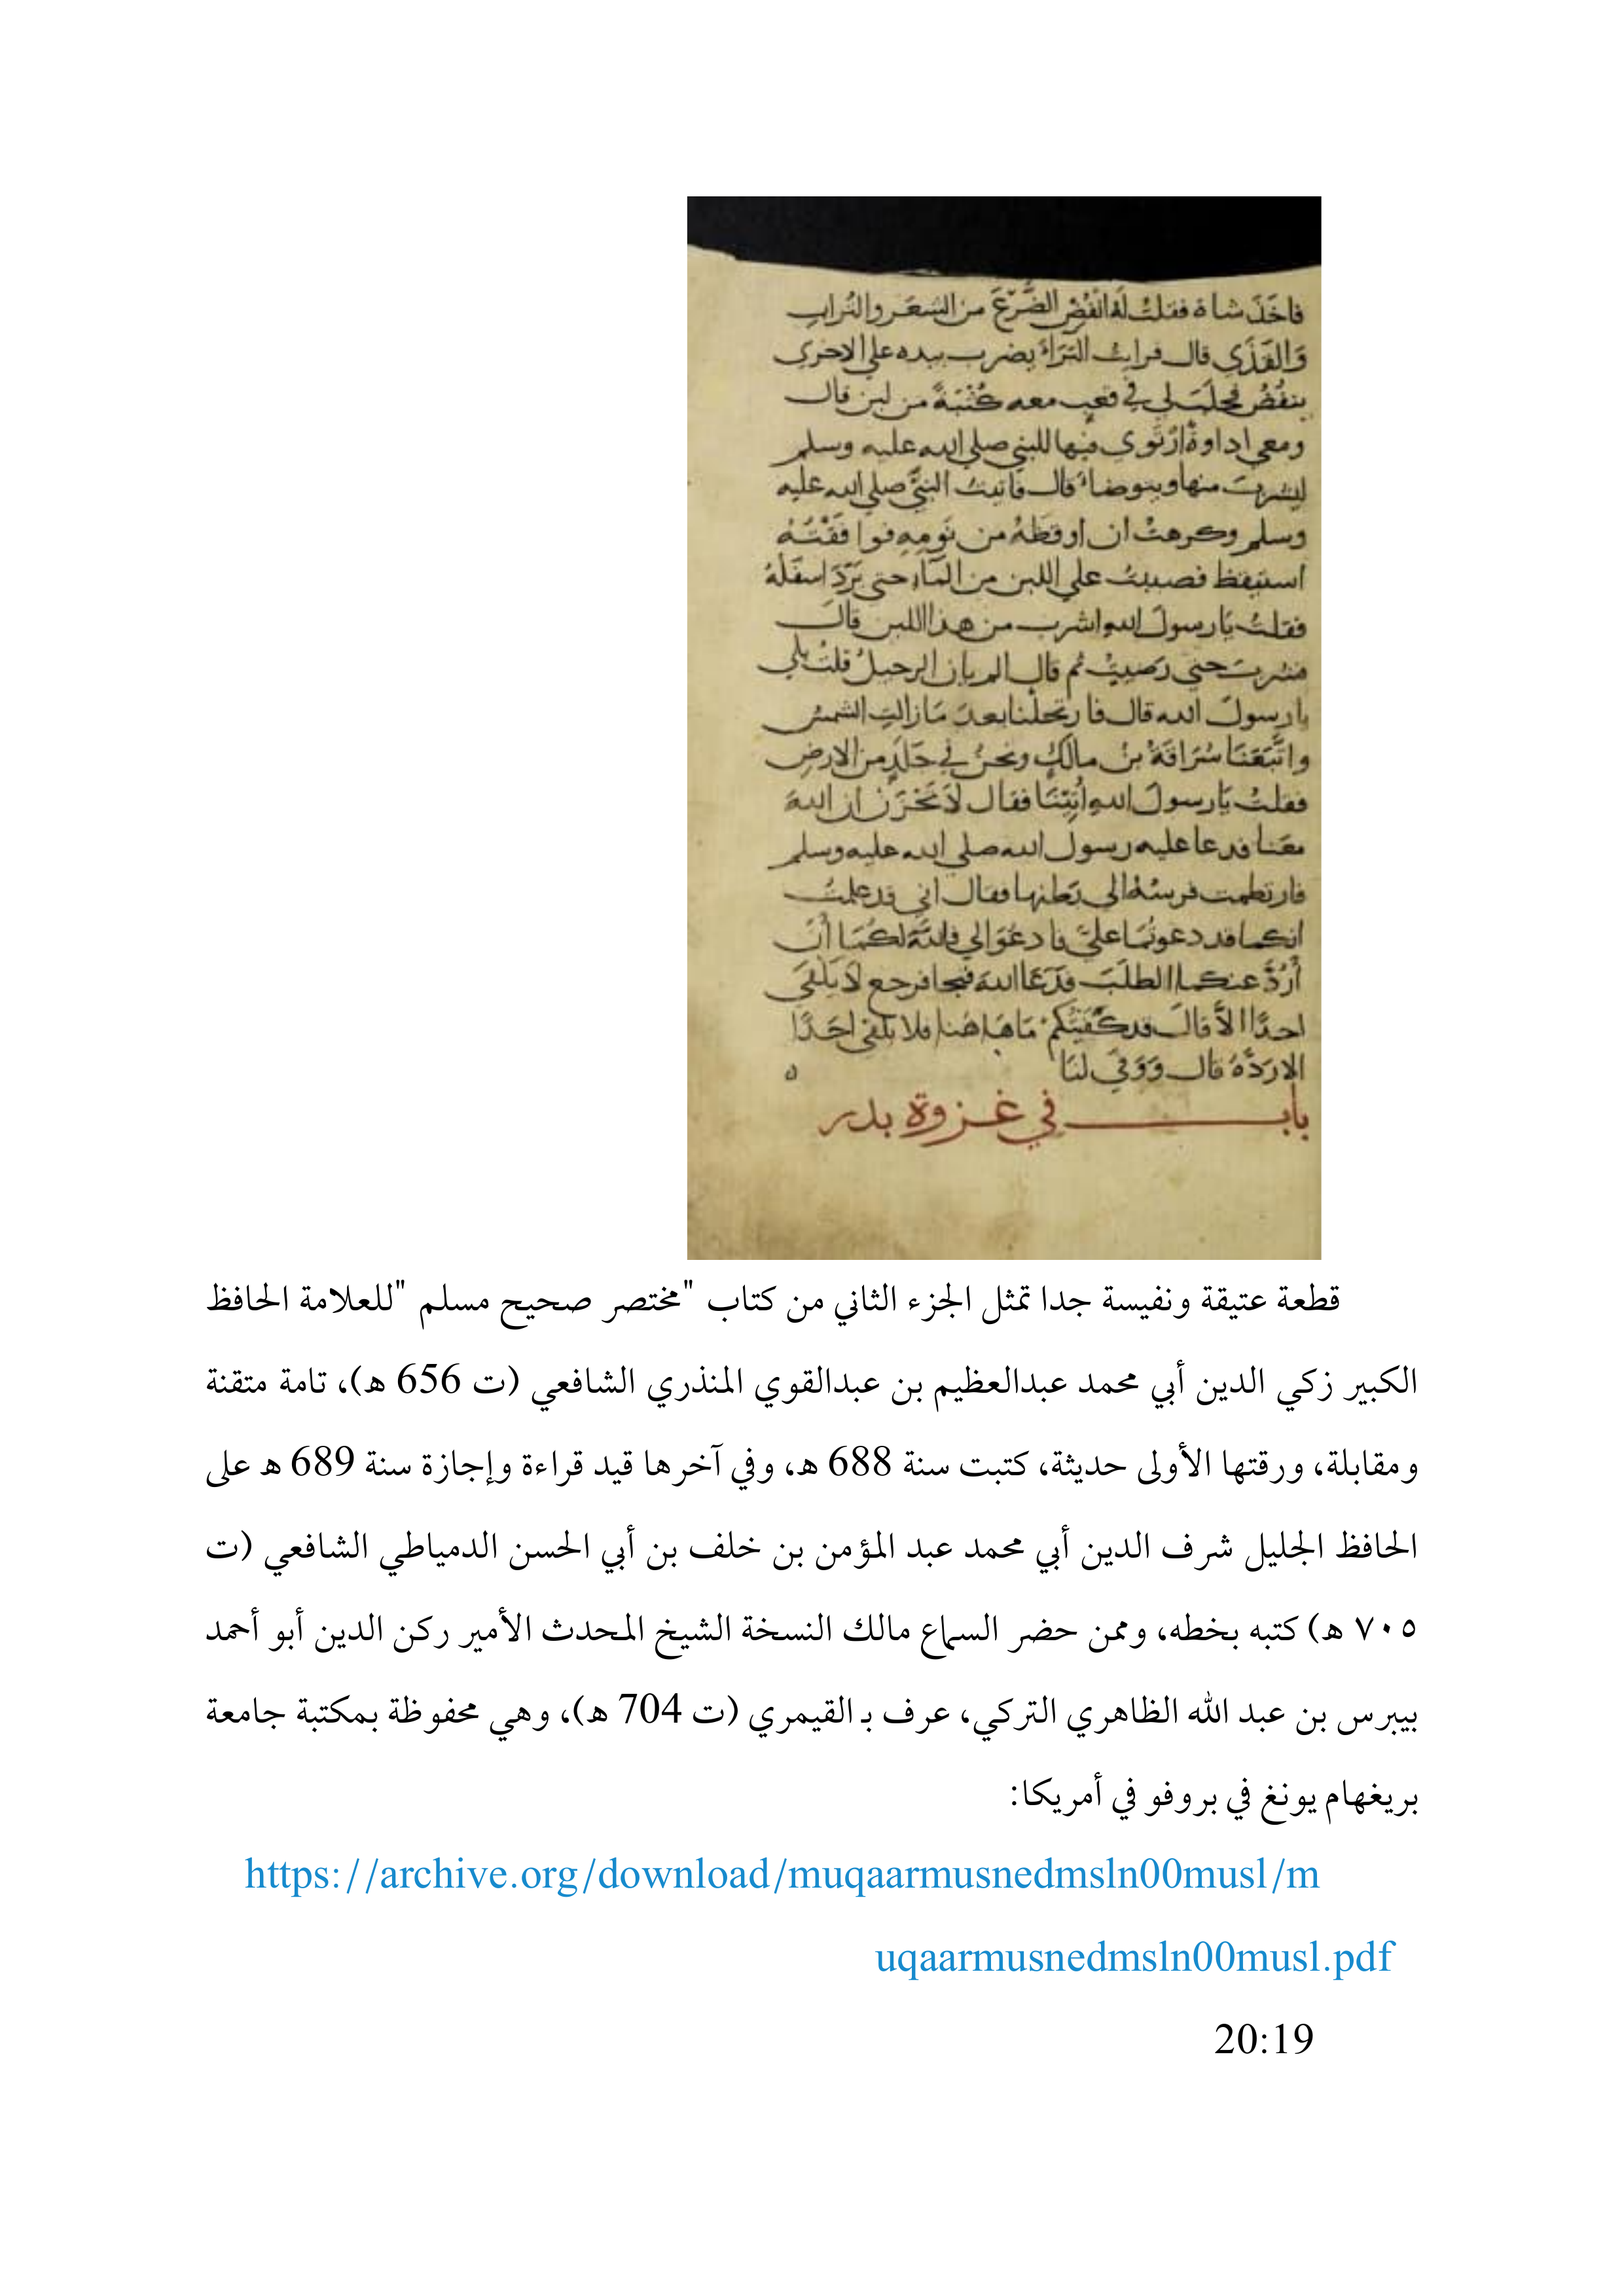 فاخَذَ شاة فقلتُ لَهُ انْفُضِ الضَّرْعَ من الشعَر والتُراب
وَالقذَي قال فرايتُ البَرَاءَ يضرب بيده علي الاخري
ينفُضُ فحلَبَ لي في قعب معه كُثْبَةً من لبن قال
ومعي اداوةٌ ارْتَوي فيها للنبي صلي الله عليه وسلم
ليشربَ منها ويتوضاءَ قال فاتيتُ النبيَّ صلي الله عليه
وسلم وكرهتُ ان اوقظهُ من نَومِهِ فوافقْتُهُ
استيقظ فصببتُ علي اللبن من المآءِ حتي بَرَدَ اسفَلُهُ
فقلتُ يَارسولَ اللهِ اشرب من هذا اللبن قالَ
فشربَ حتي رَضيتُ ثم قال الم يان الرحيلُ قلتُ بلي
يارسولَ الله قال فارتحلْنا بعدَ مَا زالتِ الشمسُ
واتَّبَعَنَا سُرَاقَةُ بنُ مالكٍ ونحنُ في جَلَدٍ من الارضِ
فقلتُ يَارسولَ اللهِ اُتِيْنَا فقال لاَ تَحْزَنْ ان اللهَ
معَنا فدعا عليه رسول الله صلي الله عليه وسلم
فارتطمت فرسُهُ الى بَطنها فقال اني قد علمتُ
انكما قد دعوتُمَا عليَّ فادعُوَا لي فاللهُ لكُمَا أنْ
أَرُدَّ عنكما الطلَبَ فَدَعَا اللهَ فنجا فرجع لاَ يَلْقَي
احدًا الاَّ قالَ قد كَفَيْتُكُمْ مَا هَاهُنا فلا يلقى احَدًا
الا رَدَّهُ قال وَوَفَي لنَا ٥
بابــ في غزوة بدر
قطعة عتيقة ونفيسة جدا تمثل الجزء الثاني من كتاب "مختصر صحيح مسلم "للعلامة الحافظ
الكبير زكي الدين أبي محمد عبدالعظيم بن عبدالقوي المنذري الشافعي (ت 656 ه)، تامة متقنة
ومقابلة، ورقتها الأولى حديثة، كتبت سنة 688 ه، وفي آخرها قيد قراءة وإجازة سنة 689 ه على
الحافظ الجليل شرف الدين أبي محمد عبد المؤمن بن خلف بن أبي الحسن الدمياطي الشافعي (ت
٧٠٥ ه) كتبه بخطه، وممن حضر السماع مالك النسخة الشيخ المحدث الأمير ركن الدين أبو أحمد
بيبرس بن عبد الله الظاهري التركي، عرف بـ القيمري (ت 704 ه)، وهي محفوظة بمكتبة جامعة
بريغهام يونغ في بروفو في أمريكا:
https://archive.org/download/muqaarmusnedmsln00musl/m
uqaarmusnedmsln00musl.pdf
20:19